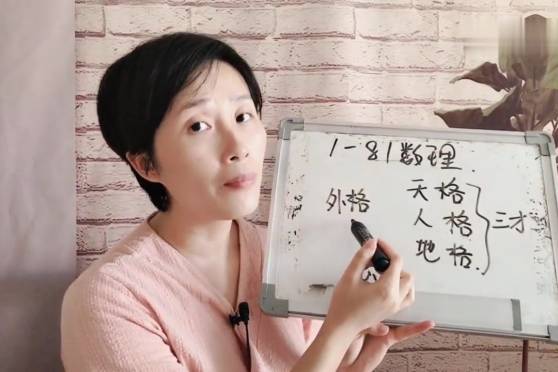 1-81数理.
外格
天格
人格
地格
三才